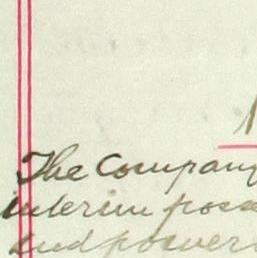 The Company
interim posse
and powers